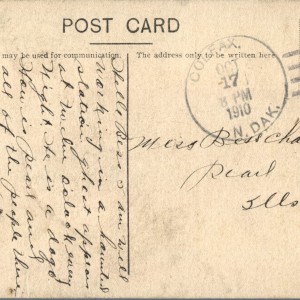 POST CARD
may be used for communication.
The address only to be written here
COLFAX,
OCT
17
8 PM
1910
N. DAK.
Hello Bess I am well
working in a haunted
station ghost appears
at twelve o'clock every
Night he is a dog
How is pearl and
all of the people there
Miss Bess Cha
Pearl
Ills